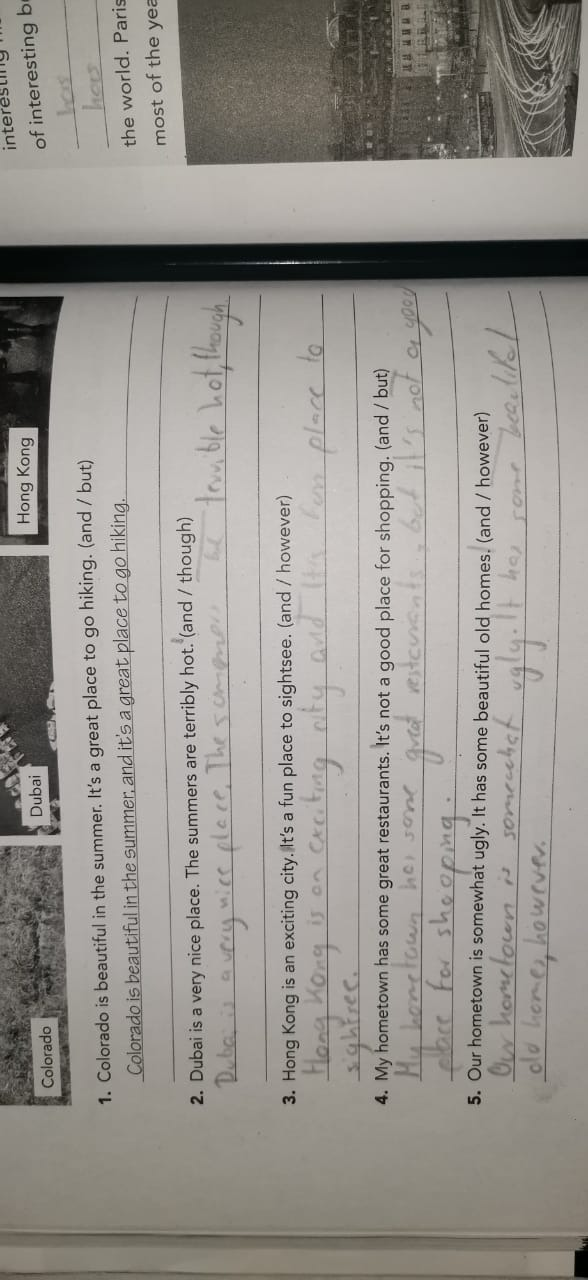 interesting
of interesting b
has
hers
the world. Paris
most of the yea
Colorado
Dubai
Hong Kong
1. Colorado is beautiful in the summer. It's a great place to go hiking. (and / but)
Colorado is beautiful in the summer, and it's a great place to go hiking.
2. Dubai is a very nice place. The summers are terribly hot. (and / though)
Dubai is a very nice place. The summers terrible hot, though.
3. Hong Kong is an exciting city. It's a fun place to sightsee. (and / however)
Hong Kong is an exciting city and it's fun place to
sightsee.
4. My hometown has some great restaurants. It's not a good place for shopping. (and / but)
My hometown has some great restaurants, but it's not a good
place for shopping.
5. Our hometown is somewhat ugly. It has some beautiful old homes. (and / however)
Our hometown is somewhat ugly. It has some
old homes, however.